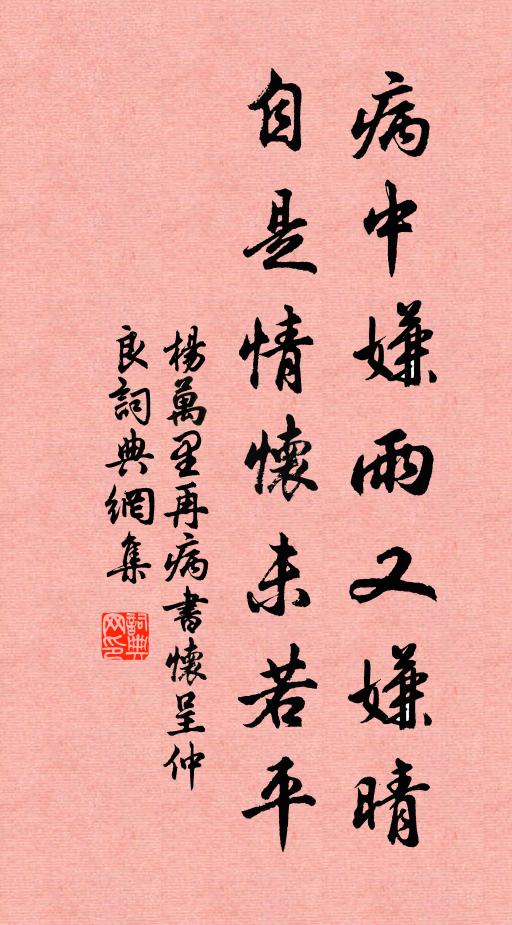 病中嫌雨又嫌晴
自是情懷未若平
楊萬里再病書懷呈仲
良詞典網集
詞典
网印